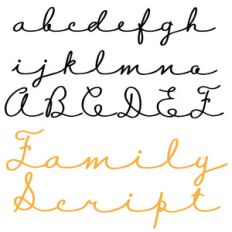 abcdefgh
ijklmno
ABCDEF
Family
Script